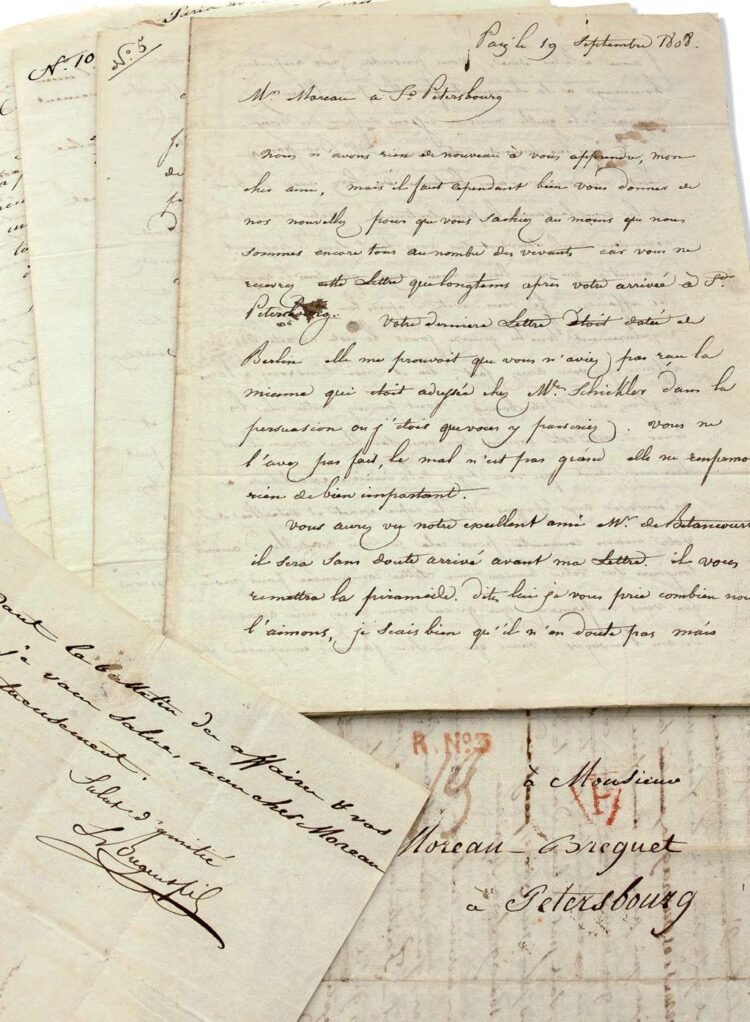 Nº 10
Nº 5
Paris le 19 Septembre 1808.
Mr. Moreau a St. Petersbourg
Nous n'avons rien de nouveau à vous apprendre, mon
cher ami, mais il faut cependant bien vous donner de
nos nouvelles pour que vous sachiez au moins que nous
sommes encore tous au nombre des vivants car vous ne
recevrez cette Lettre que longtems après votre arrivée à St.
Petersbourg. Votre derniere Lettre étoit datée de
Berlin elle me prouvait que vous n'aviez pas reçu la
mienne qui étoit adressée chez Mr. Schickler dans la
persuasion ou j'étois que vous y passeriez. vous ne
l'avez pas fait, le mal n'est pas grand elle ne renfermo
rien de bien important.
Vous aurez vu notre excellent ami Mr. de Betancourt
il sera sans doute arrivé avant ma Lettre. il vous
remettra la piramide. dites lui je vous prie combien nou
l'aimons, je scais bien qu'il n'en doute pas mais
la de affaires & vos
je vous salue, mon cher Moreau
Salut d'amitié
R. Nº 3
à Monsieur
P
Moreau - Breguet
à Petersbourg